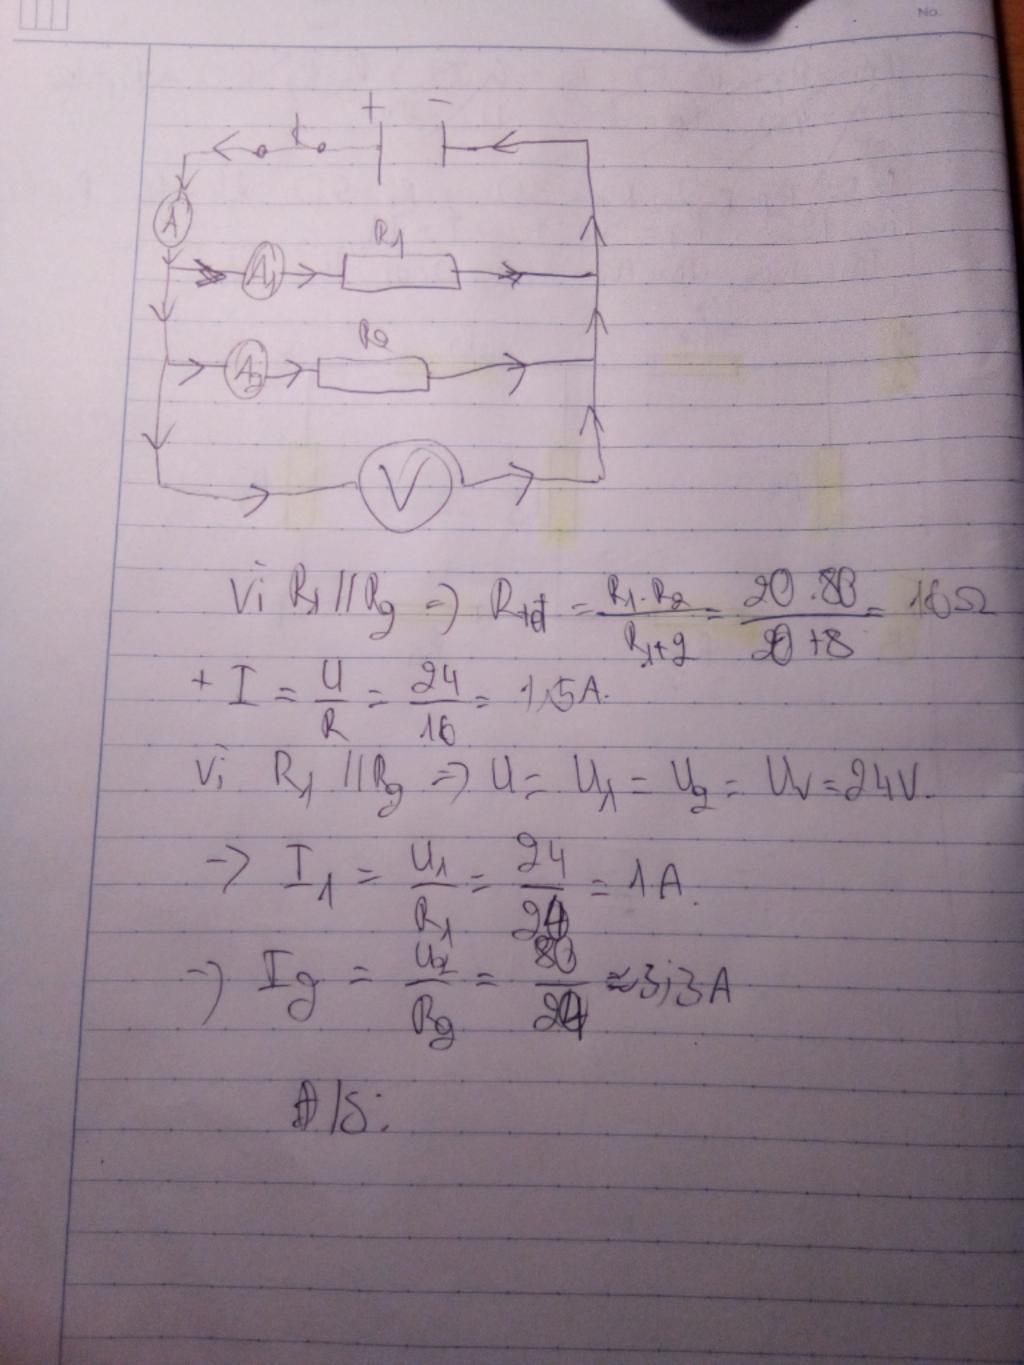 No.
+ -
K
A
R1
A1
R2
A2
V
Vì R1 // R2 => Rtđ = R1.R2 / R1+2 = 20.80 / 20+8 = 16Ω
+ I = U / R = 24 / 16 = 1,5A.
Vì R1 // R2 => U = U1 = U2 = UV = 24V.
-> I1 = U1 / R1 = 24 / 24 = 1A.
-> I2 = U2 / R2 = 80 / 24 ≈ 3,3A
Đ/S: